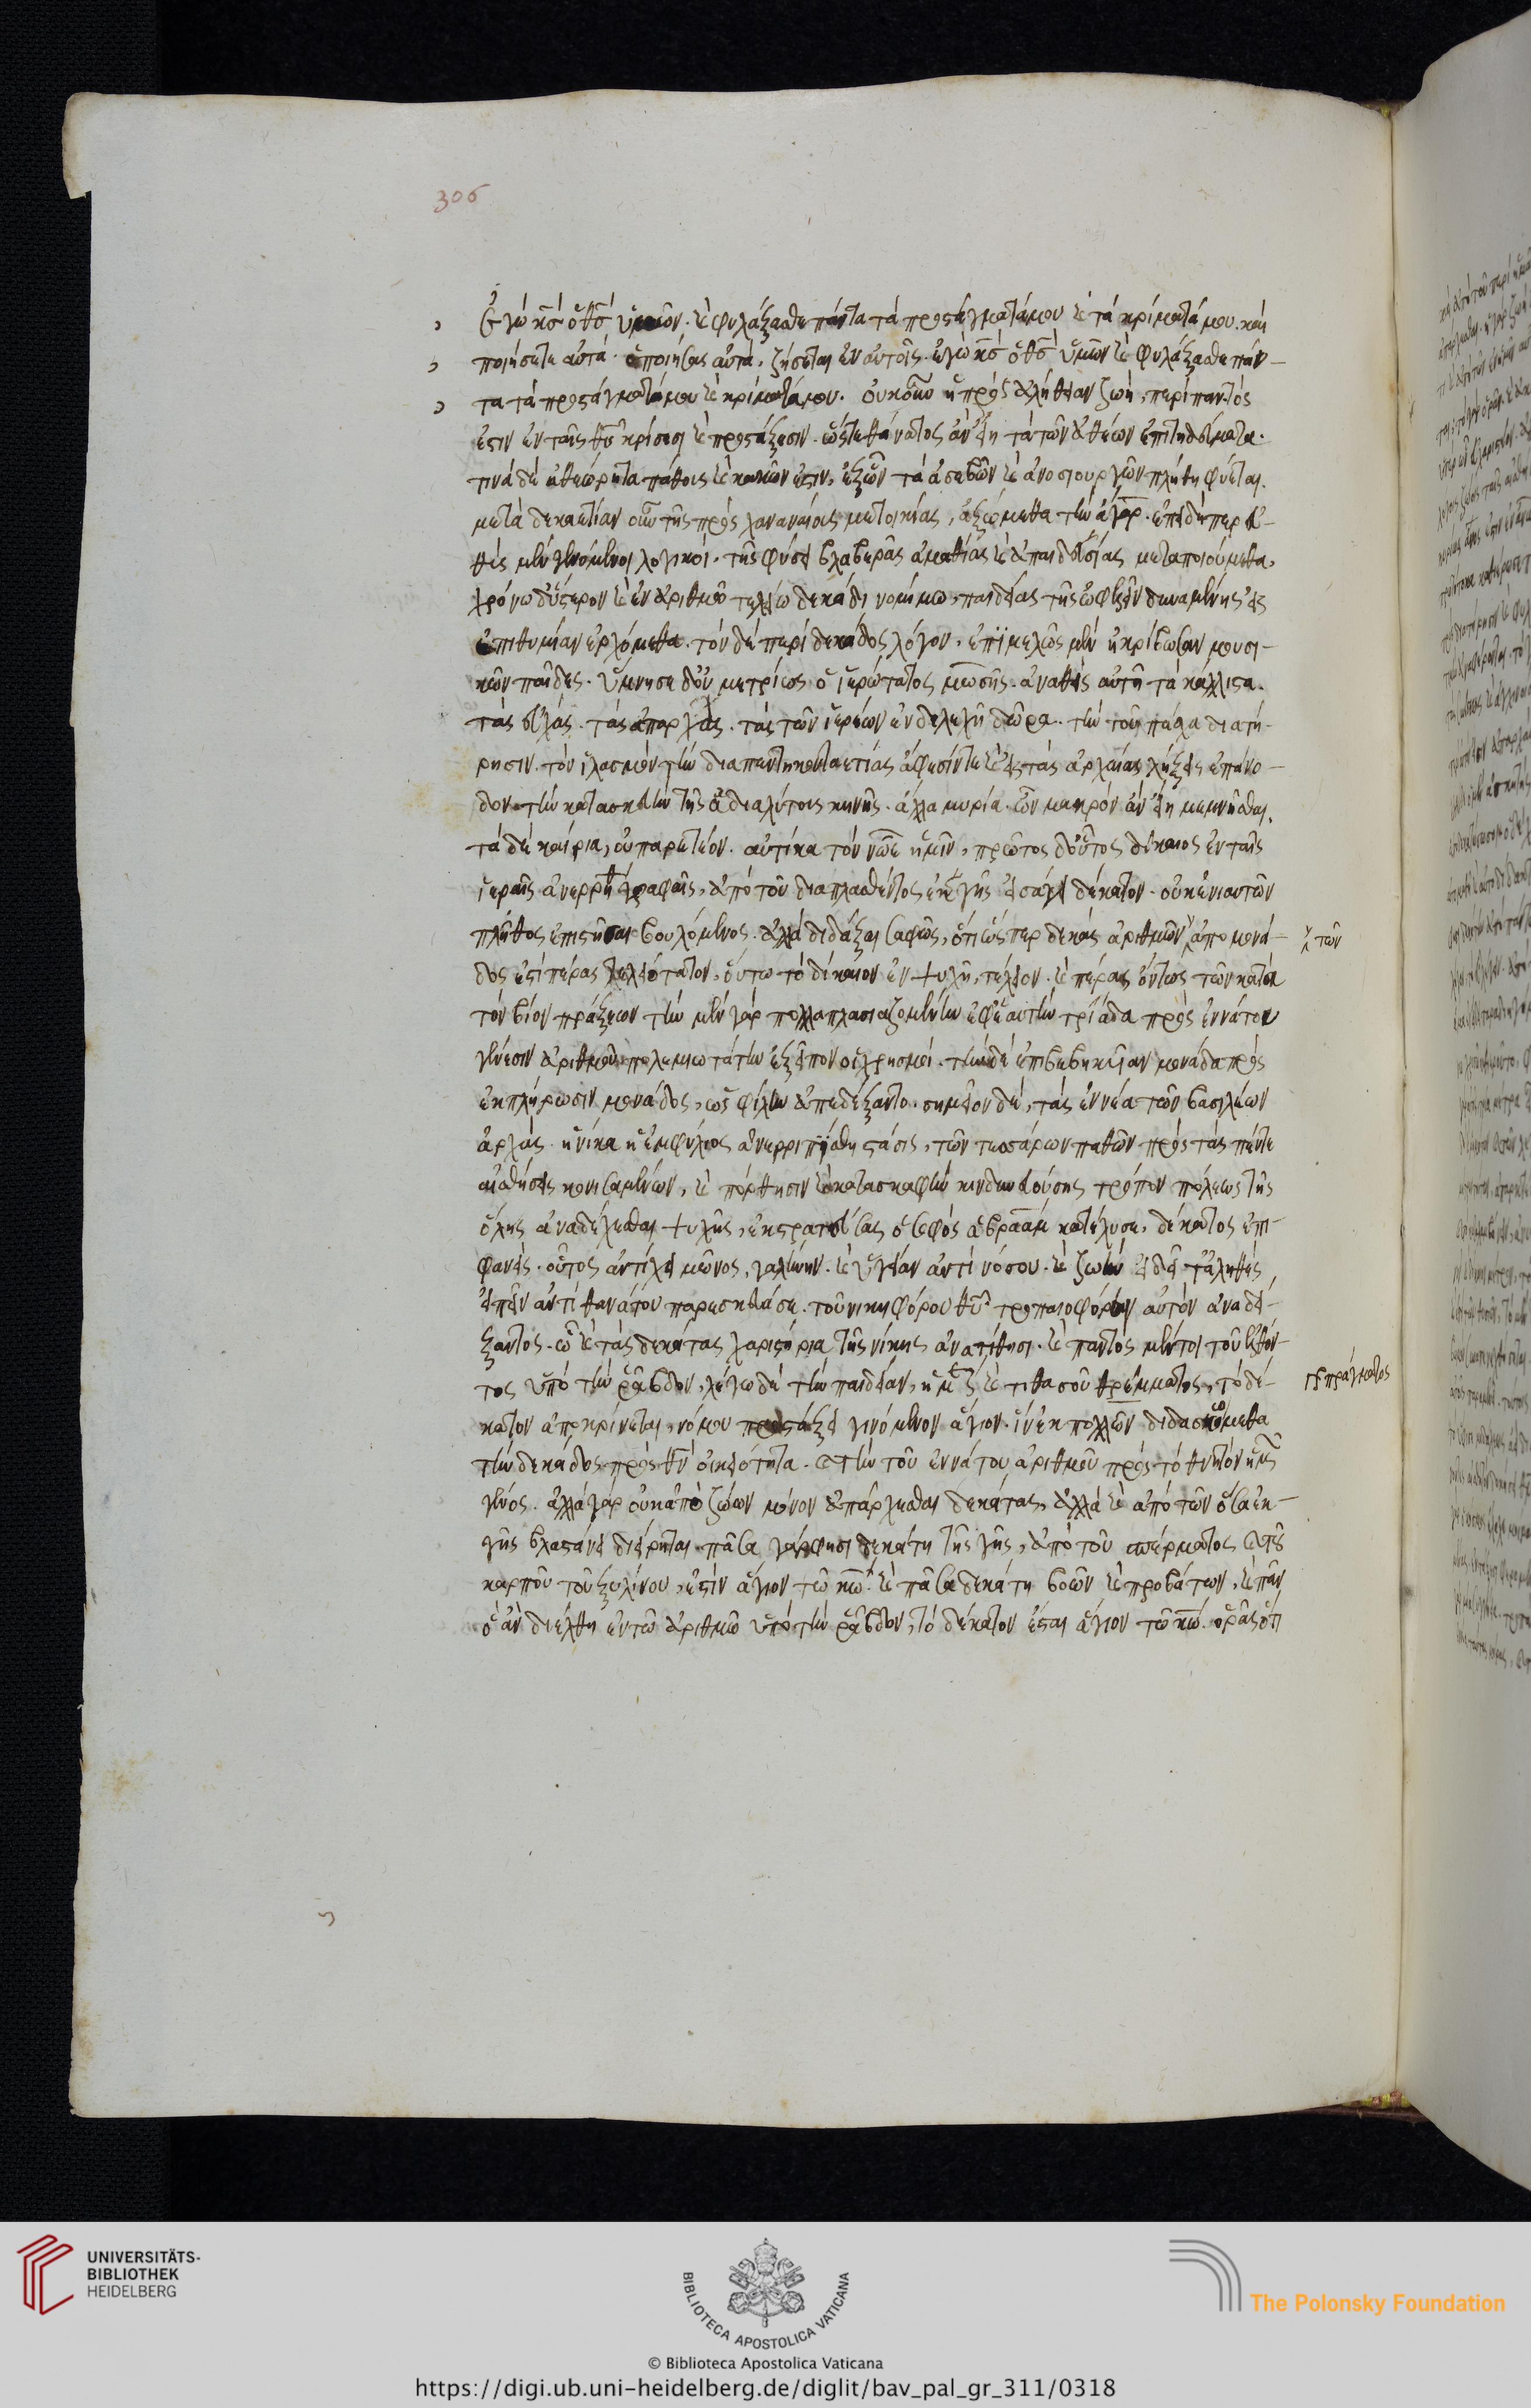 306
Ἐγὼ κ̅ς̅ ὁ θ̅ς̅ ὑμῶν. καὶ φυλάξασθε πάντα τὰ προστάγματά μου καὶ τὰ κρίματά μου. καὶ
ποιήσετε αὐτά. ὁ ποιήσας αὐτά, ζήσεται ἐν αὐτοῖς. ἐγὼ κ̅ς̅ ὁ θ̅ς̅ ὑμῶν καὶ φυλάξασθε πάν-
τα τὰ προστάγματά μου καὶ κρίματά μου. οὐκοῦν ἡ πρὸς ἀλήθειαν ζωὴ, περιπαντὸς
ἐστιν ἐν ταῖς θ̅υ̅ κρίσεσι καὶ προστάξεσιν. ὥστε θάνατος ἂν εἴη τὰ τῶν ἀθέων ἐπιτηδεύματα.
τινὰ δὲ ἀθεώρητα πάθοις καὶ κακῶν ἐστιν, ἐξ ὧν τὰ ἀσεβῶν καὶ ἀνοσιουργῶν πλήθη φύεται.
μετὰ δεκαετίαν οὖν τῆς πρὸς χαναναίοις μετοικίας, ἀξόμεθα τὴν ἄγαρ. ἐπειδήπερ εὐ-
θὺς μὲν γενόμενοι λογικοὶ. τῆς φύσει βλαβερᾶς ἀμαθίας καὶ ἀπαιδευσίας μεταποιούμεθα,
χρόνω δ' ὕστερον καὶ ἐν ἀριθμῶ τελείω δεκάδι νομίμω, παιδείας τῆς ὠφελεῖν δυναμένης εἰς
ἐπιθυμίαν ἐρχόμεθα. τὸν δὲ περὶ δεκάδος λόγον, ἐπϊμελῶς μὲν ἠκρίβωσαν μουσι-
κῶν παῖδες. ὕμνησε δ' οὐ μετρίως ὁ ἱερώτατος μωσῆς. ἀναθεὶς αὐτῆ τὰ κάλλιστα.
τὰς εὐχὰς. τὰς ἀπαρχὰς. τὰς τῶν ἱερέων ἐνδελεχῆ δῶρα. τὴν τοῦ πάσχα διατή-
ρησιν. τὸν ἱλασμὸν τὴν διαπεντηκονταετίας ἄφεσίν τε καὶ εἰς τὰς ἀρχαίας λήξεις ἐπάνο-
δον. τὴν κατασκευὴν τῆς ἀδιαλύτοις κηνῆς. ἄλλα μυρία. ὧν μακρὸν ἂν εἴη μεμνῆσθαι.
τὰ δὲ καίρια, οὐ παρετέον. αὐτίκα τὸν νῶε ἡμῖν, πρῶτος δ' οὗτος δίκαιος ἐν ταῖς
ἱεραῖς ἀνερρήθη γραφαῖς, ἀπὸ τοῦ διαπλασθέντος ἐκ γῆς εἰσάγει δέκατον. οὐκ ἐνιαυτῶν
πλῆθος ἐπιστῆσαι βουλόμενος. ἀλλὰ διδάξαι σαφῶς, ὅτι ὥσπερ δεκὰς ἀριθμῶν ἀπὸ μονά-
δος ἐστὶ πέρας τελειότατον, οὕτω τὸ δίκαιον ἐν ψυχῆ, τέλειον. καὶ πέρας ὄντως τῶν κατὰ
τὸν βίον πράξεων τὴν μὲν γὰρ πολλαπλασιαζομένην ἐφ' ἑαυτὴν τρϊάδα πρὸς ἐννάτου
γένεσιν ἀριθμοῦ, πολεμιωτάτην ἐξεῖπον οἱ χρησμοί. τὴν δὲ ἐπιβεβηκυῖαν μονάδα πρὸς
ἐκπλήρωσιν μονάδος, ὡς φίλην ἀπεδέξαντο. σημεῖον δὲ, τὰς ἐννέα τῶν βασιλέων
ἀρχὰς. ἡνίκα ἡ ἐμφύλιος ἀνερριπίσθη στάσις, τῶν τεσσάρων παθῶν πρὸς τὰς πέντε
αἰσθήσεις κονισαμένων, καὶ πόρθησιν καὶ κατασκαφὴν κινδυνευούσης τρόπον πόλεως τῆς
ὅλης ἀναδέχεσθαι ψυχῆς, ἐκστρατεύσας ὁ σοφὸς ἀβραὰμ κατέλυσε, δέκατος ἐπι-
φανεὶς. οὗτος ἀντὶ χειμῶνος, γαλήνην. καὶ ὑγείαν ἀντὶ νόσου. καὶ ζωὴν εἰ δεῖ τἀληθὲς
εἰπεῖν ἀντὶ θανάτου παρεσκεύασε. τοῦ νικηφόρου θ̅υ̅ τροπαιοφόρον αὐτὸν ἀναδεί-
ξαντος. ὧ καὶ τὰς δεκάτας χαριστήρια τῆς νίκης ἀνατίθησι. καὶ παντὸς μέντοι τοῦ ἐλθόν-
τος ὑπὸ τὴν ῥάβδον, λέγω δὲ τὴν παιδείαν, ἡμέρου καὶ τιθασοῦ θρέμματος, τὸ δέ-
κατον ἀποκρίνεται, νόμου προστάξει γινόμενον ἅγιον. ἵν' ἐκ πολλῶν διδασκώμεθα
τὴν δεκάδος πρὸς θ̅ν̅ οἰκειότητα. καὶ τὴν τοῦ ἐννάτου ἀριθμοῦ πρὸς τὸ θνητὸν ἡμῶν
γένος. ἀλλὰ γὰρ οὐκ ἀπὸ ζώων μόνον ἀπάρχεσθαι δεκάτας, ἀλλὰ καὶ ἀπὸ τῶν ὅσα ἐκ-
γῆς βλαστάνει διείρηται. πᾶσα γάρ φησι δεκάτη τῆς γῆς, ἀπὸ τοῦ σπέρματος καὶ τοῦ
καρποῦ τοῦ ξυλίνου, ἐστὶν ἅγιον τῶ κ̅ω̅. καὶ πᾶσα δεκάτη βοῶν καὶ προβάτων, καὶ πᾶν
ὃ ἂν διέλθη ἐν τῶ ἀριθμῶ ὑπὸ τὴν ῥάβδον, τὸ δέκατον ἔσται ἅγιον τῶ κ̅ω̅. ὁρᾶς ὅτι
τῶν
πράγματος
UNIVERSITÄTS-
BIBLIOTHEK
HEIDELBERG
BIBLIOTECA APOSTOLICA VATICANA
The Polonsky Foundation
© Biblioteca Apostolica Vaticana
https://digi.ub.uni-heidelberg.de/diglit/bav_pal_gr_311/0318